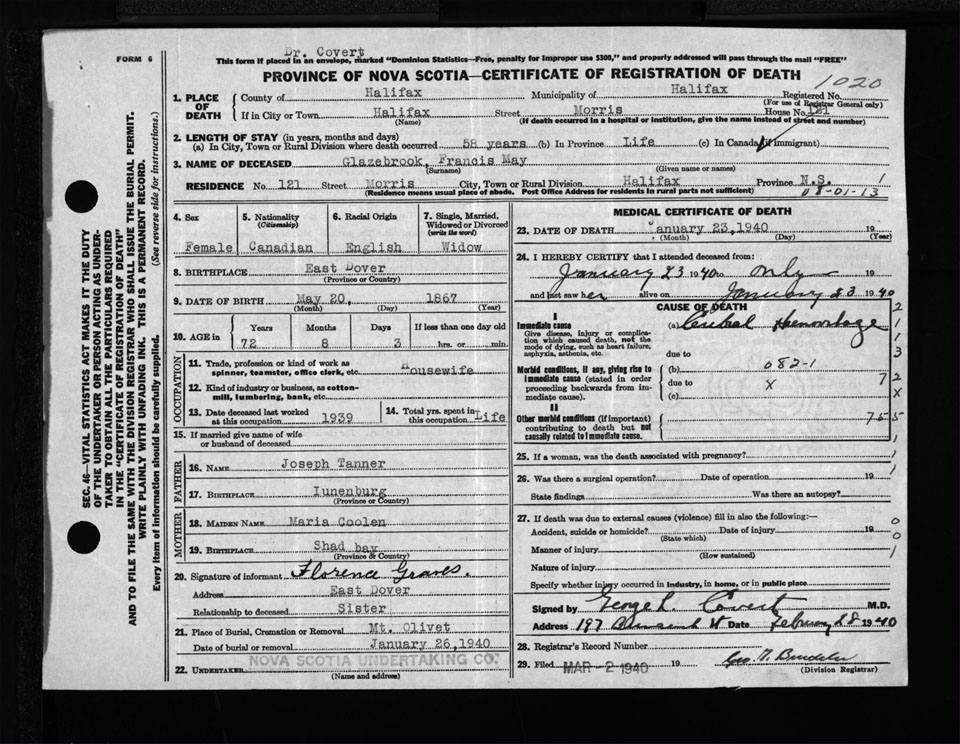 Dr. Covert
FORM 6
This form if placed in an envelope, marked "Dominion Statistics—Free, penalty for improper use $300," and properly addressed will pass through the mail "FREE"
PROVINCE OF NOVA SCOTIA—CERTIFICATE OF REGISTRATION OF DEATH
1020
1. PLACE OF DEATH
County of Halifax Municipality of Halifax Registered No.
(For use of Registrar General only)
If in City or Town Halifax Street Morris House No. 121
(Name) (If death occurred in a hospital or institution, give the name instead of street and number)
2. LENGTH OF STAY (in years, months and days)
(a) In City, Town or Rural Division where death occurred 58 years (b) In Province Life (c) In Canada (if immigrant)
3. NAME OF DECEASED Glazebrook, Francis May
(Surname) (Given name or names)
RESIDENCE No. 121 Street Morris City, Town or Rural Division Halifax Province N.S. 1
(Residence means usual place of abode. Post Office Address for residents in rural parts not sufficient) 08-01-13
4. Sex Female
5. Nationality (Citizenship) Canadian
6. Racial Origin English
7. Single, Married, Widowed or Divorced (write the word) Widow
8. BIRTHPLACE East Dover
(Province or Country)
9. DATE OF BIRTH May 20, 1867
(Month) (Day) (Year)
10. AGE in Years Months Days If less than one day old
72 8 3 hrs. or min.
OCCUPATION
11. Trade, profession or kind of work as spinner, teamster, office clerk, etc. Housewife
12. Kind of industry or business, as cotton-mill, lumbering, bank, etc.
13. Date deceased last worked at this occupation 1939
14. Total yrs. spent in this occupation Life
15. If married give name of wife or husband of deceased
FATHER
16. NAME Joseph Tanner
17. BIRTHPLACE Lunenburg
(Province or Country)
MOTHER
18. MAIDEN NAME Maria Coolen
19. BIRTHPLACE Shad bay
(Province or Country)
20. Signature of informant Florence Graves.
Address East Dover
Relationship to deceased Sister
21. Place of Burial, Cremation or Removal Mt. Olivet
Date of burial or removal January 26, 1940
22. UNDERTAKER NOVA SCOTIA UNDERTAKING CO.
(Name and address)
MEDICAL CERTIFICATE OF DEATH
23. DATE OF DEATH January 23, 1940 19
(Month) (Day) (Year)
24. I HEREBY CERTIFY that I attended deceased from:
January 23 1940 to only 19
and last saw her alive on January 23 1940
CAUSE OF DEATH
I
Immediate cause (a) Cerebral Haemorrhage
Give disease, injury or complication which caused death, not the mode of dying, such as heart failure, asphyxia, asthenia, etc.
due to
Morbid conditions, if any, giving rise to immediate cause (stated in order proceeding backwards from immediate cause).
(b) 082-1
due to X
(c)
II
Other morbid conditions (if important) contributing to death but not causally related to immediate cause.
2
1
1
3
7 2
X
755
1
25. If a woman, was the death associated with pregnancy? 1
26. Was there a surgical operation? Date of operation 19
State findings Was there an autopsy?
27. If death was due to external causes (violence) fill in also the following:—
Accident, suicide or homicide? Date of injury 19
(State which)
Manner of injury
(How sustained)
0
0
1
Nature of injury
Specify whether injury occurred in industry, in home, or in public place
Signed by George L. Covert M.D.
Address 197 Date February 28 1940
28. Registrar's Record Number
29. Filed MAR - 2 1940 19
(Division Registrar)
SEC. 46—VITAL STATISTICS ACT MAKES IT THE DUTY
OF THE UNDERTAKER OR PERSON ACTING AS UNDER-
TAKER TO OBTAIN ALL THE PARTICULARS REQUIRED
IN THE "CERTIFICATE OF REGISTRATION OF DEATH"
AND TO FILE THE SAME WITH THE DIVISION REGISTRAR WHO SHALL ISSUE THE BURIAL PERMIT.
WRITE PLAINLY WITH UNFADING INK. THIS IS A PERMANENT RECORD.
Every item of information should be carefully supplied. (See reverse side for instructions.)